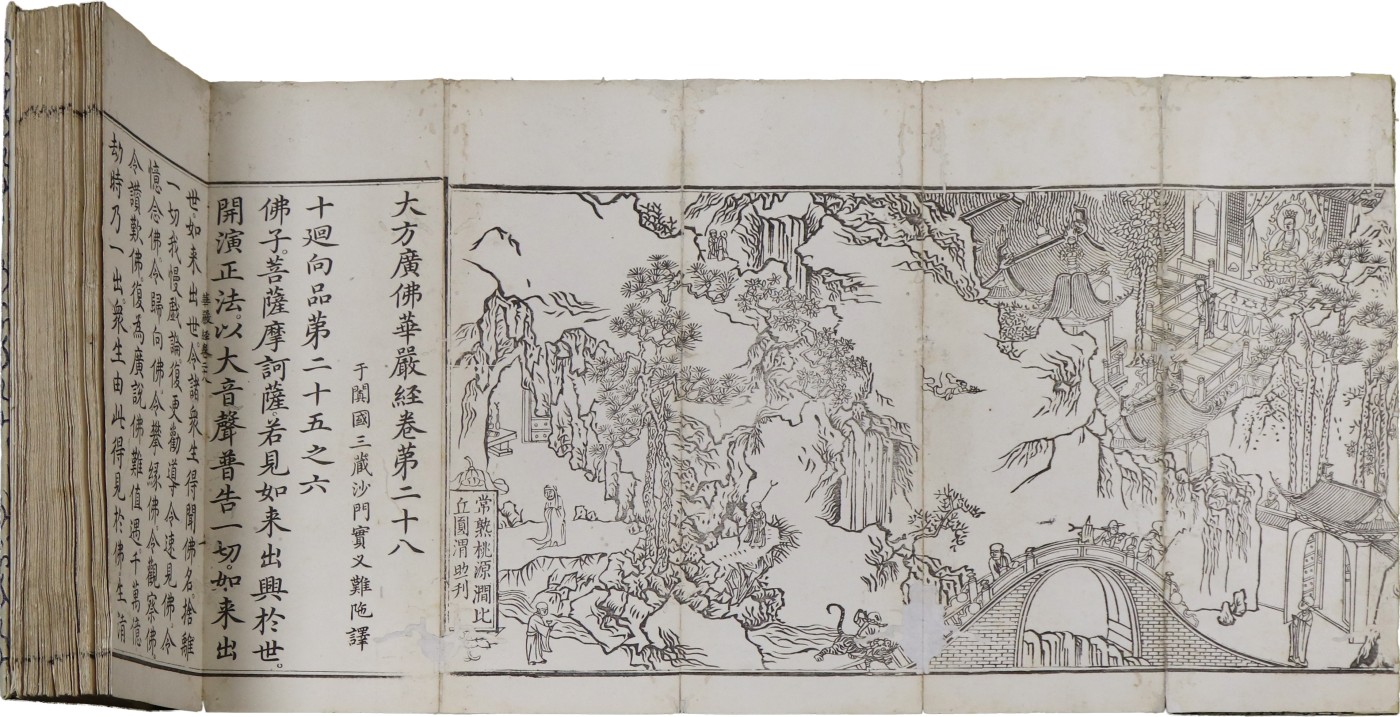 常熟桃源澗比
丘圓渭助刊
大方廣佛華嚴経卷第二十八
于闐國三藏沙門實叉難陁譯
十廻向品第二十五之六
佛子。菩薩摩訶薩。若見如来出興於世。
開演正法。以大音聲普告一切。如来出
世。如来出世。令諸衆生得聞佛名捨離
一切我慢戲論。復更勸導令速見佛。令
憶念佛。令歸向佛。令攀縁佛。令觀察佛。
令讚歎佛。復為廣說佛難值遇。千萬億
劫時乃一出。衆生由此得見於佛。生清